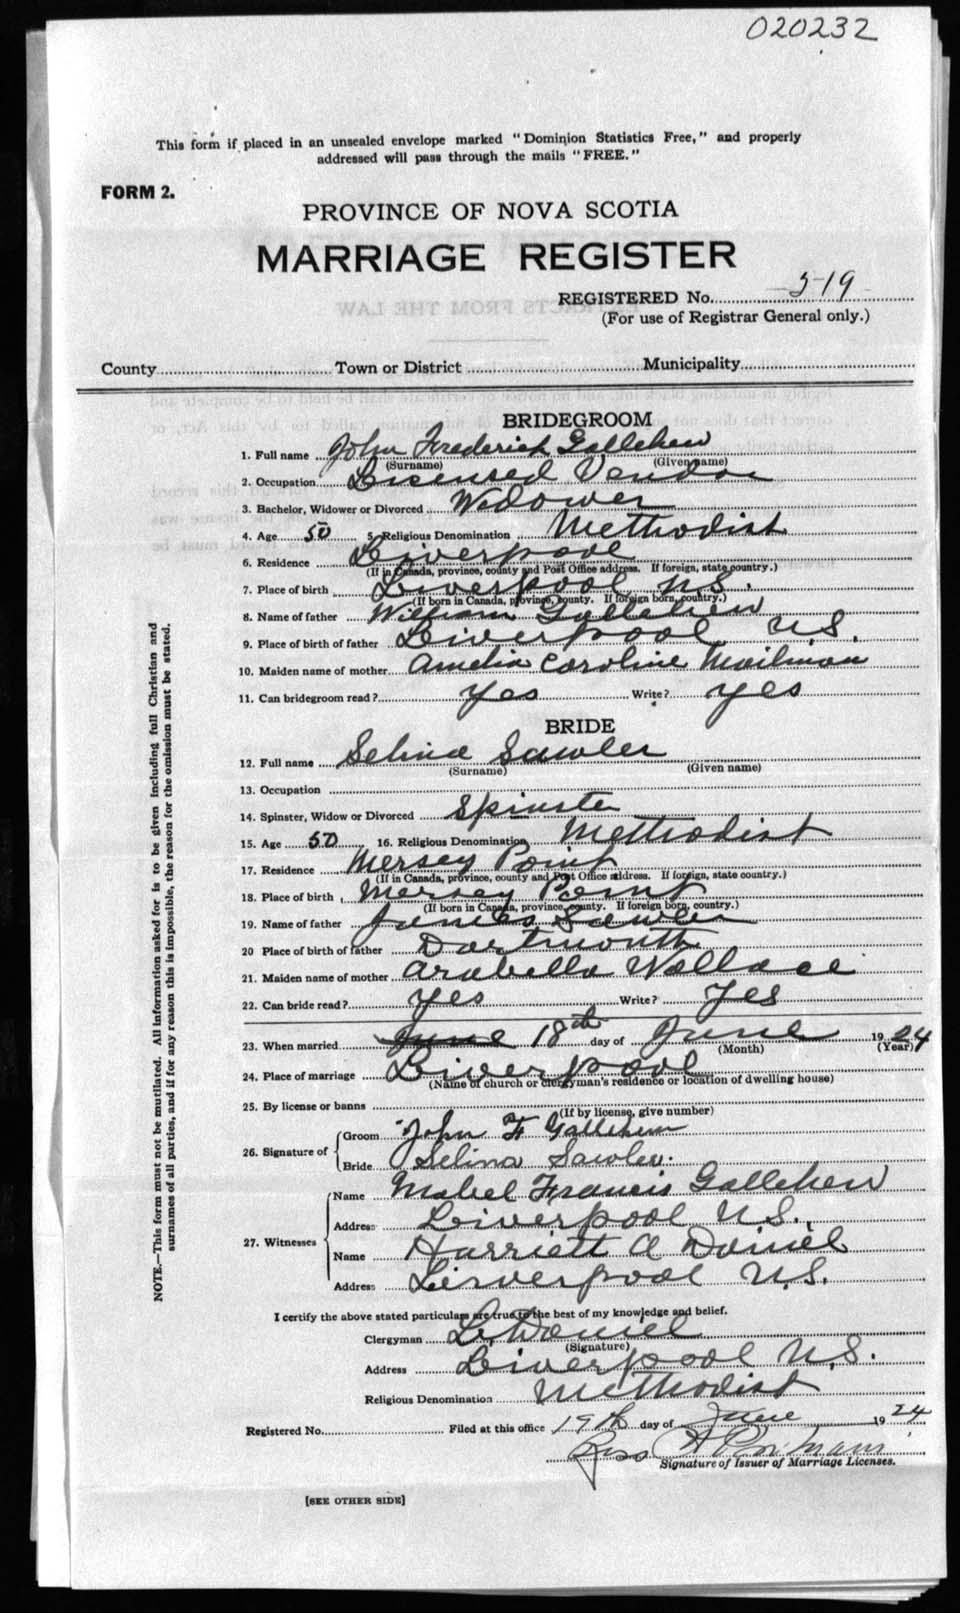 020232
This form if placed in an unsealed envelope marked "Dominion Statistics Free," and properly
addressed will pass through the mails "FREE."
FORM 2.
PROVINCE OF NOVA SCOTIA
MARRIAGE REGISTER
REGISTERED No. 519
(For use of Registrar General only.)
County Town or District Municipality
BRIDEGROOM
1. Full name John Frederick Gallehew
(Surname) (Given name)
2. Occupation Licensed Vendor
3. Bachelor, Widower or Divorced Widower
4. Age 50 5. Religious Denomination Methodist
6. Residence Liverpool
(If in Canada, province, county and Post Office address. If foreign, state country.)
7. Place of birth Liverpool N.S.
(If born in Canada, province, county. If foreign born, country.)
8. Name of father William Gallehew
9. Place of birth of father Liverpool N.S.
10. Maiden name of mother Amelia Caroline Mailman
11. Can bridegroom read? Yes Write? Yes
BRIDE
12. Full name Selina Sawler
(Surname) (Given name)
13. Occupation
14. Spinster, Widow or Divorced Spinster
15. Age 50 16. Religious Denomination Methodist
17. Residence Mersey Point
(If in Canada, province, county and Post Office address. If foreign, state country.)
18. Place of birth Mersey Point
(If born in Canada, province, county. If foreign born, country.)
19. Name of father James Sawler
20 Place of birth of father Dartmouth
21. Maiden name of mother Arabella Wallace
22. Can bride read? Yes Write? Yes
23. When married June 18th day of June 1924
(Month) (Year)
24. Place of marriage Liverpool
(Name of church or clergyman's residence or location of dwelling house)
25. By license or banns
(If by license, give number)
26. Signature of
Groom John F Gallehew
Bride Selina Sawler.
27. Witnesses
Name Mabel Francis Gallehew
Address Liverpool N.S.
Name Harriett A Daniel
Address Liverpool N.S.
I certify the above stated particulars are true to the best of my knowledge and belief.
Clergyman L. Daniel
(Signature)
Address Liverpool N.S.
Religious Denomination Methodist
Registered No. Filed at this office 19th day of June 1924
Signature of Issuer of Marriage Licenses.
[SEE OTHER SIDE]
NOTE.—This form must not be mutilated. All information asked for is to be given including full Christian and
surnames of all parties, and if for any reason this is impossible, the reason for the omission must be stated.